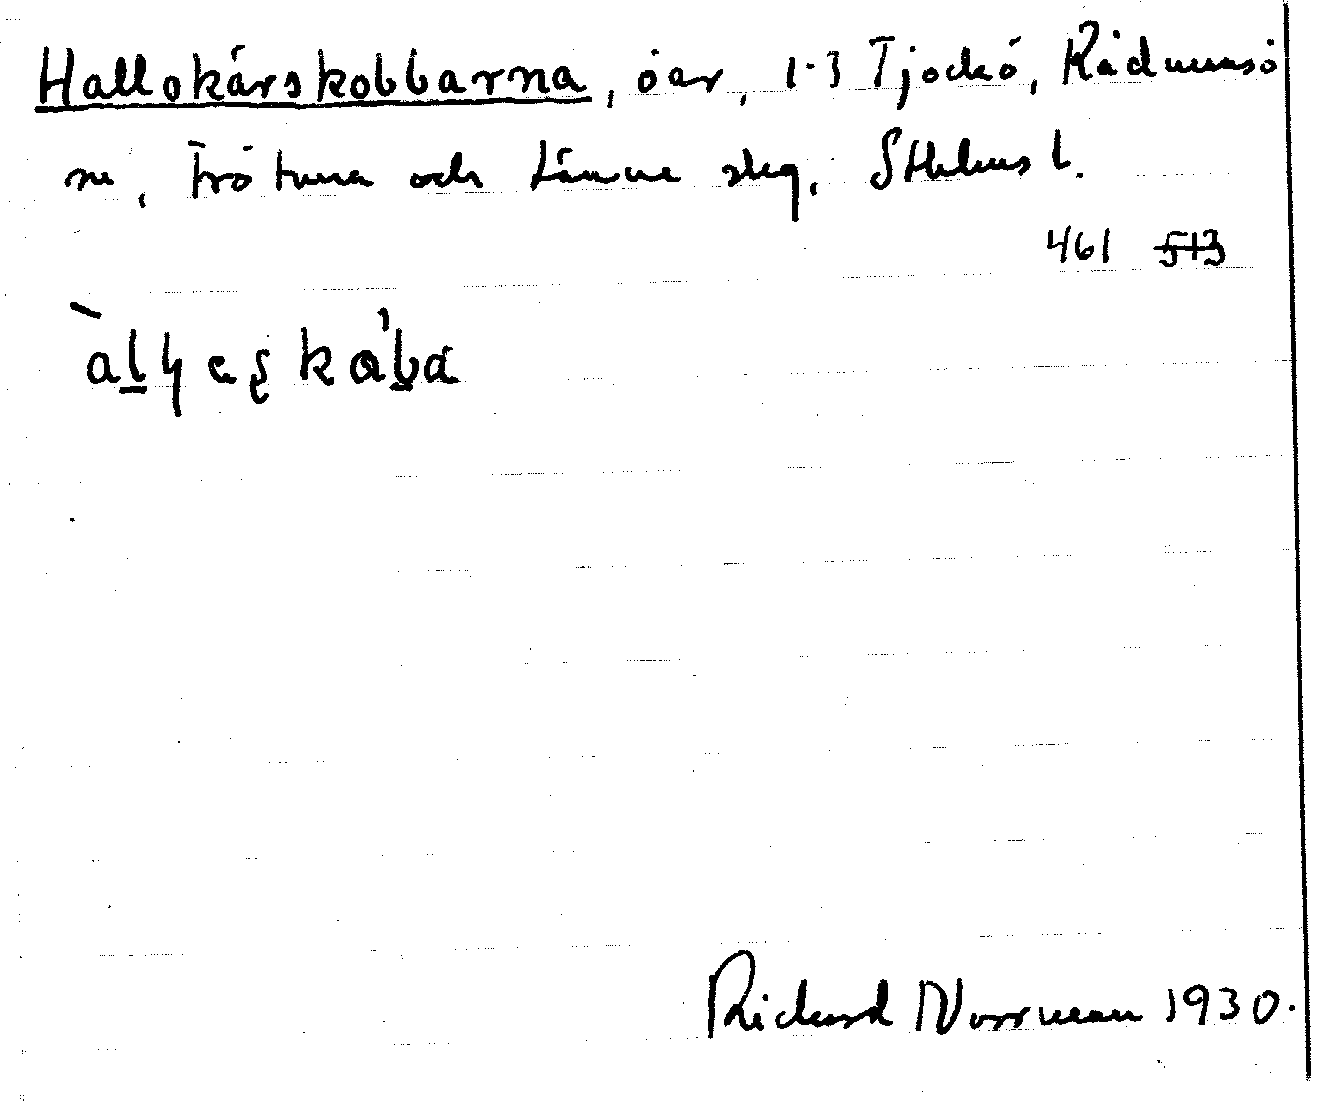 Hallokårskobbarna, öar, 1-3 Tjockö, Rådmansö
sn, Frötuna och Länna skg, Sthlms l.
461 513
Rickard Norrman 1930.